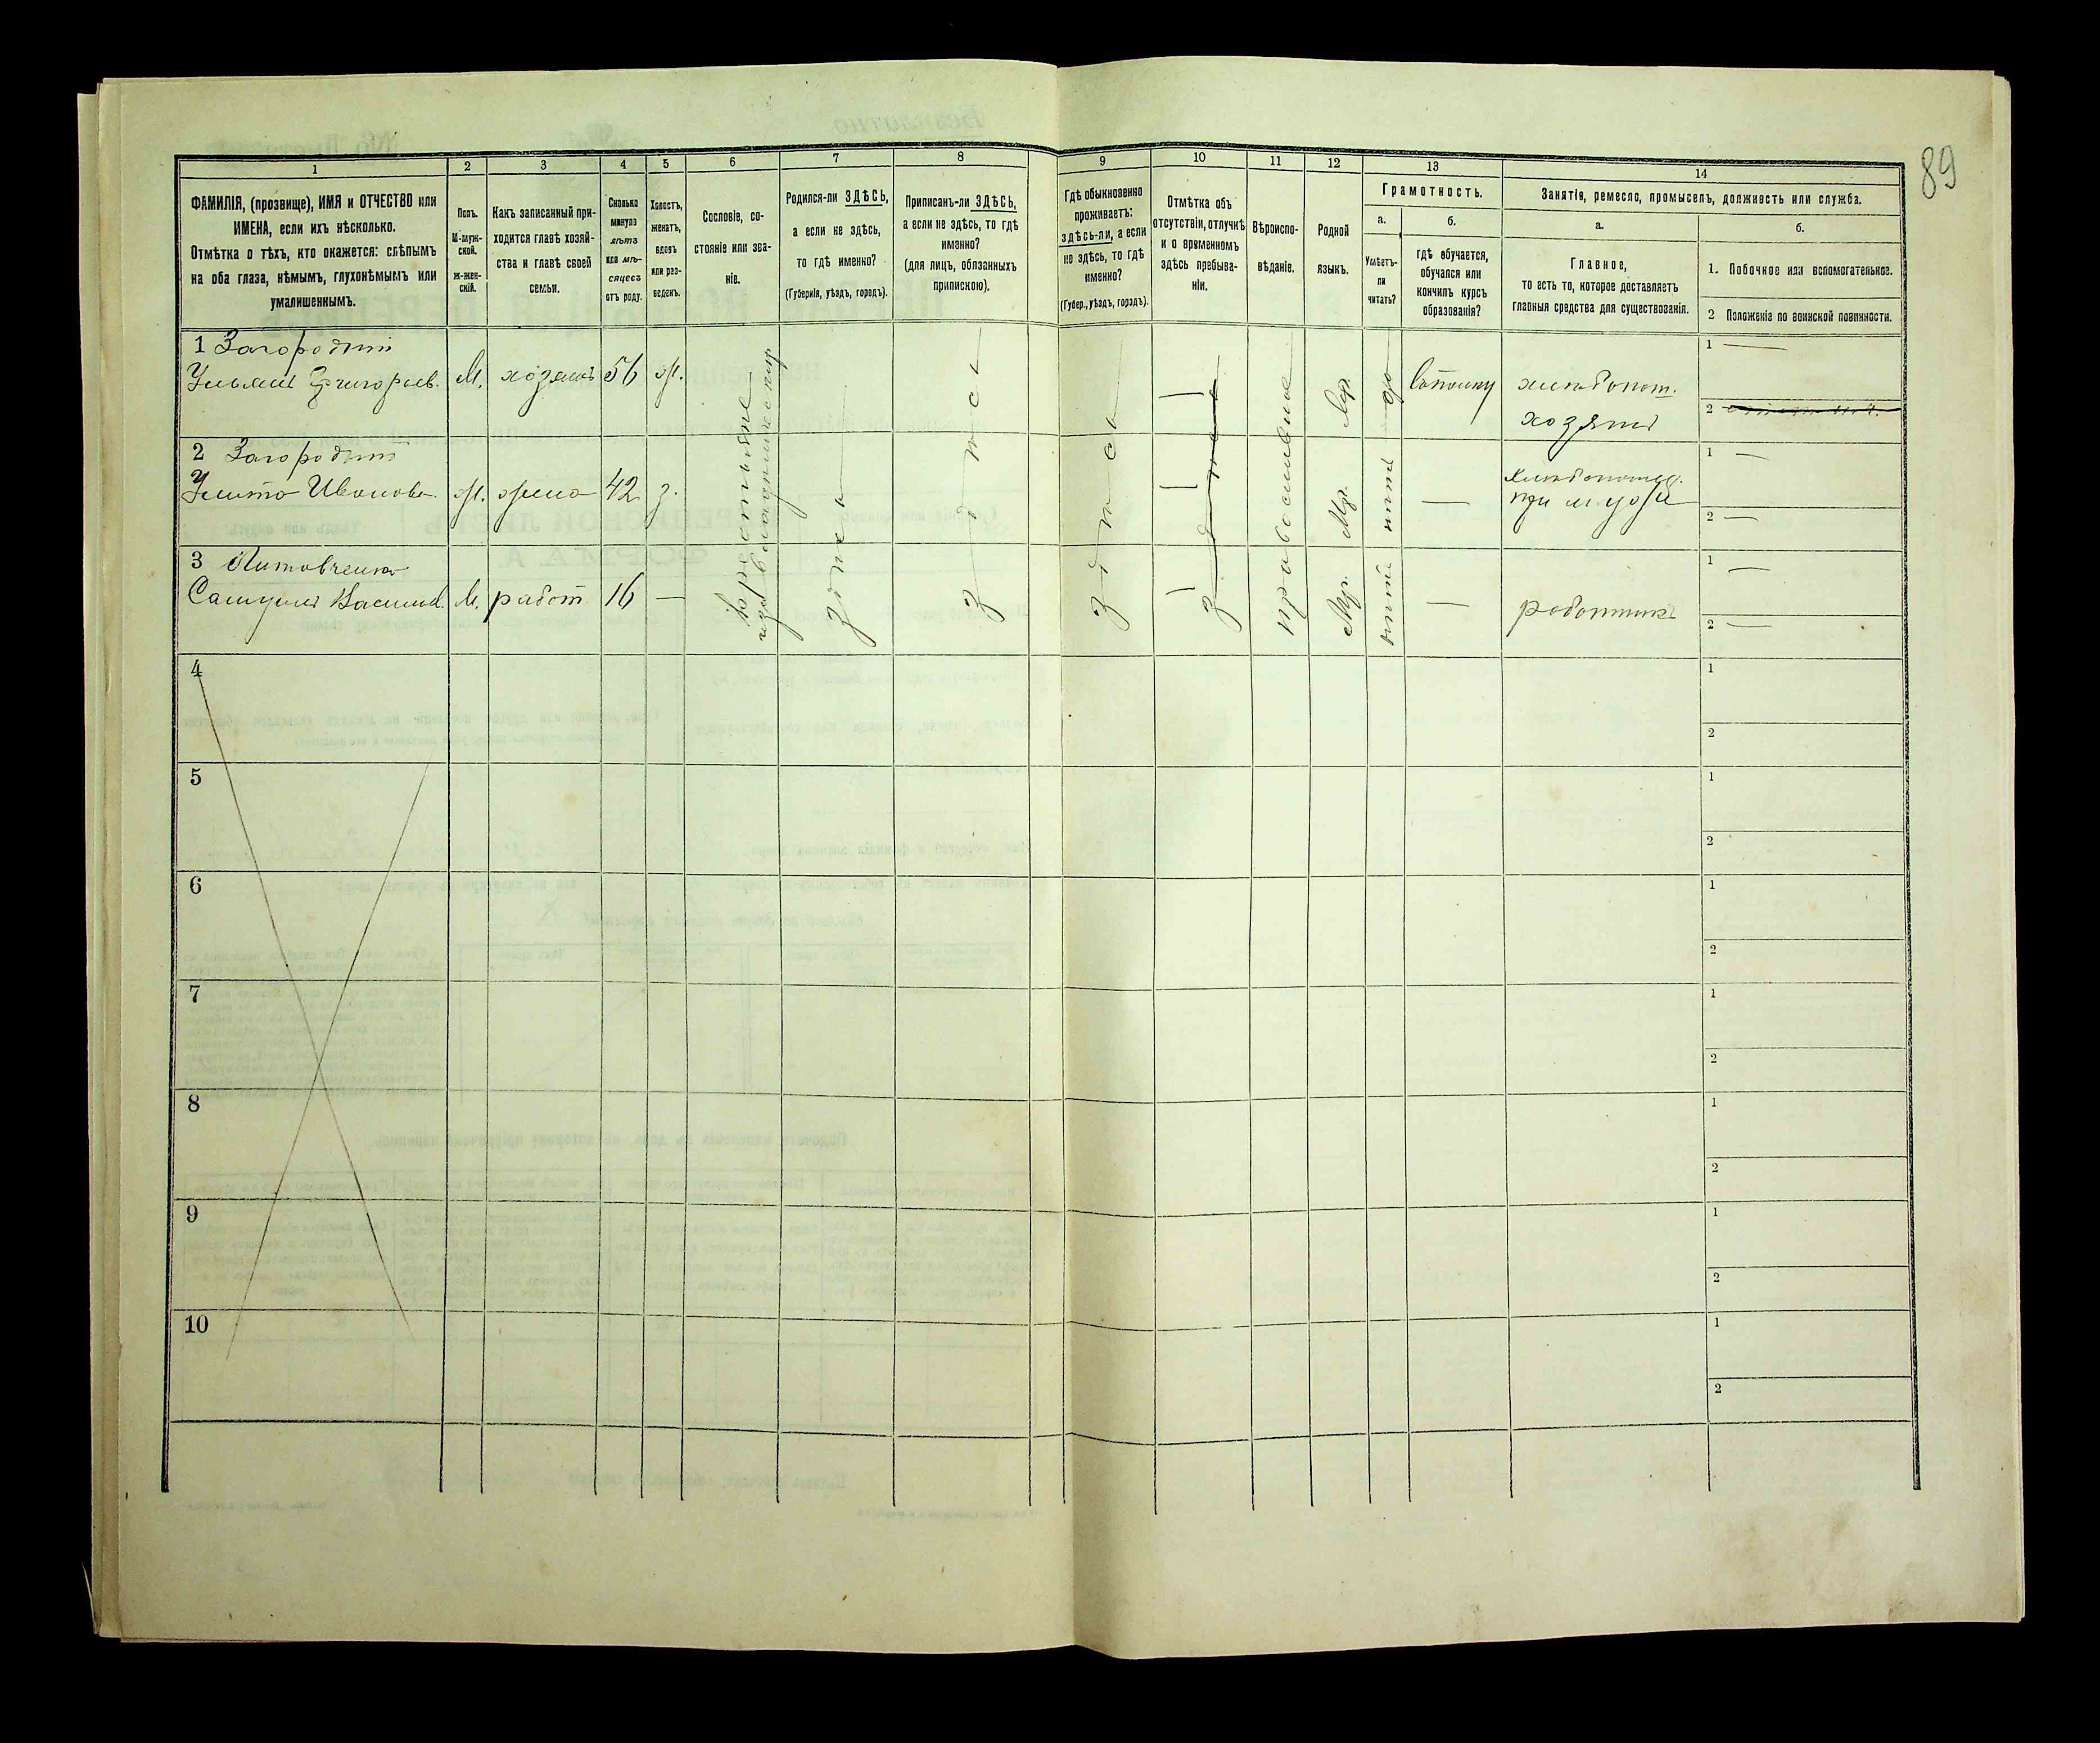 89
1
2
3
4
5
6
7
8
9
10
11
12
13
14
ФАМИЛІЯ, (прозвище), ИМЯ и ОТЧЕСТВО или
ИМЕНА, если ихъ нѣсколько.
Отмѣтка о тѣхъ, кто окажется: слѣпымъ
на оба глаза, нѣмымъ, глухонѣмымъ или
умалишеннымъ.
Полъ.
М-муж-
ской.
ж-жен-
скій.
Какъ записанный при-
ходится главѣ хозяй-
ства и главѣ своей
семьи.
Сколько
минуло
лѣтъ
или мѣ-
сяцевъ
отъ роду.
Холостъ,
женатъ,
вдовъ
или раз-
веденъ.
Сословіе, со-
стояніе или зва-
ніе.
Родился-ли ЗДѢСЬ,
а если не здѣсь,
то гдѣ именно?
(Губернія, уѣздъ, городъ).
Приписанъ-ли ЗДѢСЬ,
а если не здѣсь, то гдѣ
именно?
(для лицъ, обязанныхъ
припискою).
Гдѣ обыкновенно
проживаетъ:
здѣсь-ли, а если
не здѣсь, то гдѣ
именно?
(Губер., уѣздъ, городъ).
Отмѣтка объ
отсутствіи, отлучкѣ
и о временномъ
здѣсь пребыва-
ніи.
Вѣроиспо-
вѣданіе.
Родной
языкъ.
Грамотность.
а.
Умѣетъ-
ли
читать?
б.
гдѣ обучается,
обучался или
кончилъ курсъ
образованія?
Занятія, ремесло, промыселъ, должность или служба.
а.
Главное,
то есть то, которое доставляетъ
главныя средства для существованія.
б.
1. Побочное или вспомогательное.
2 Положеніе по воинской повинности.
1 Загородній
Ульянъ Григорьев. М. хозяинъ 56 ж.
хозяинъ
1
2
2 Загородній
Иванова. ж. жена 42 з.
при мужѣ
1
2
3 Литовченко
Самуилъ Васильев. М. работ 16 —
работникъ
1
2
крестьяне
здѣсь
здѣсь
здѣсь
здѣсь
православное
Мр.
Мр.
Мр.
да
нѣтъ
нѣтъ
4
1
2
5
1
2
6
1
2
7
1
2
8
1
2
9
1
2
10
1
2